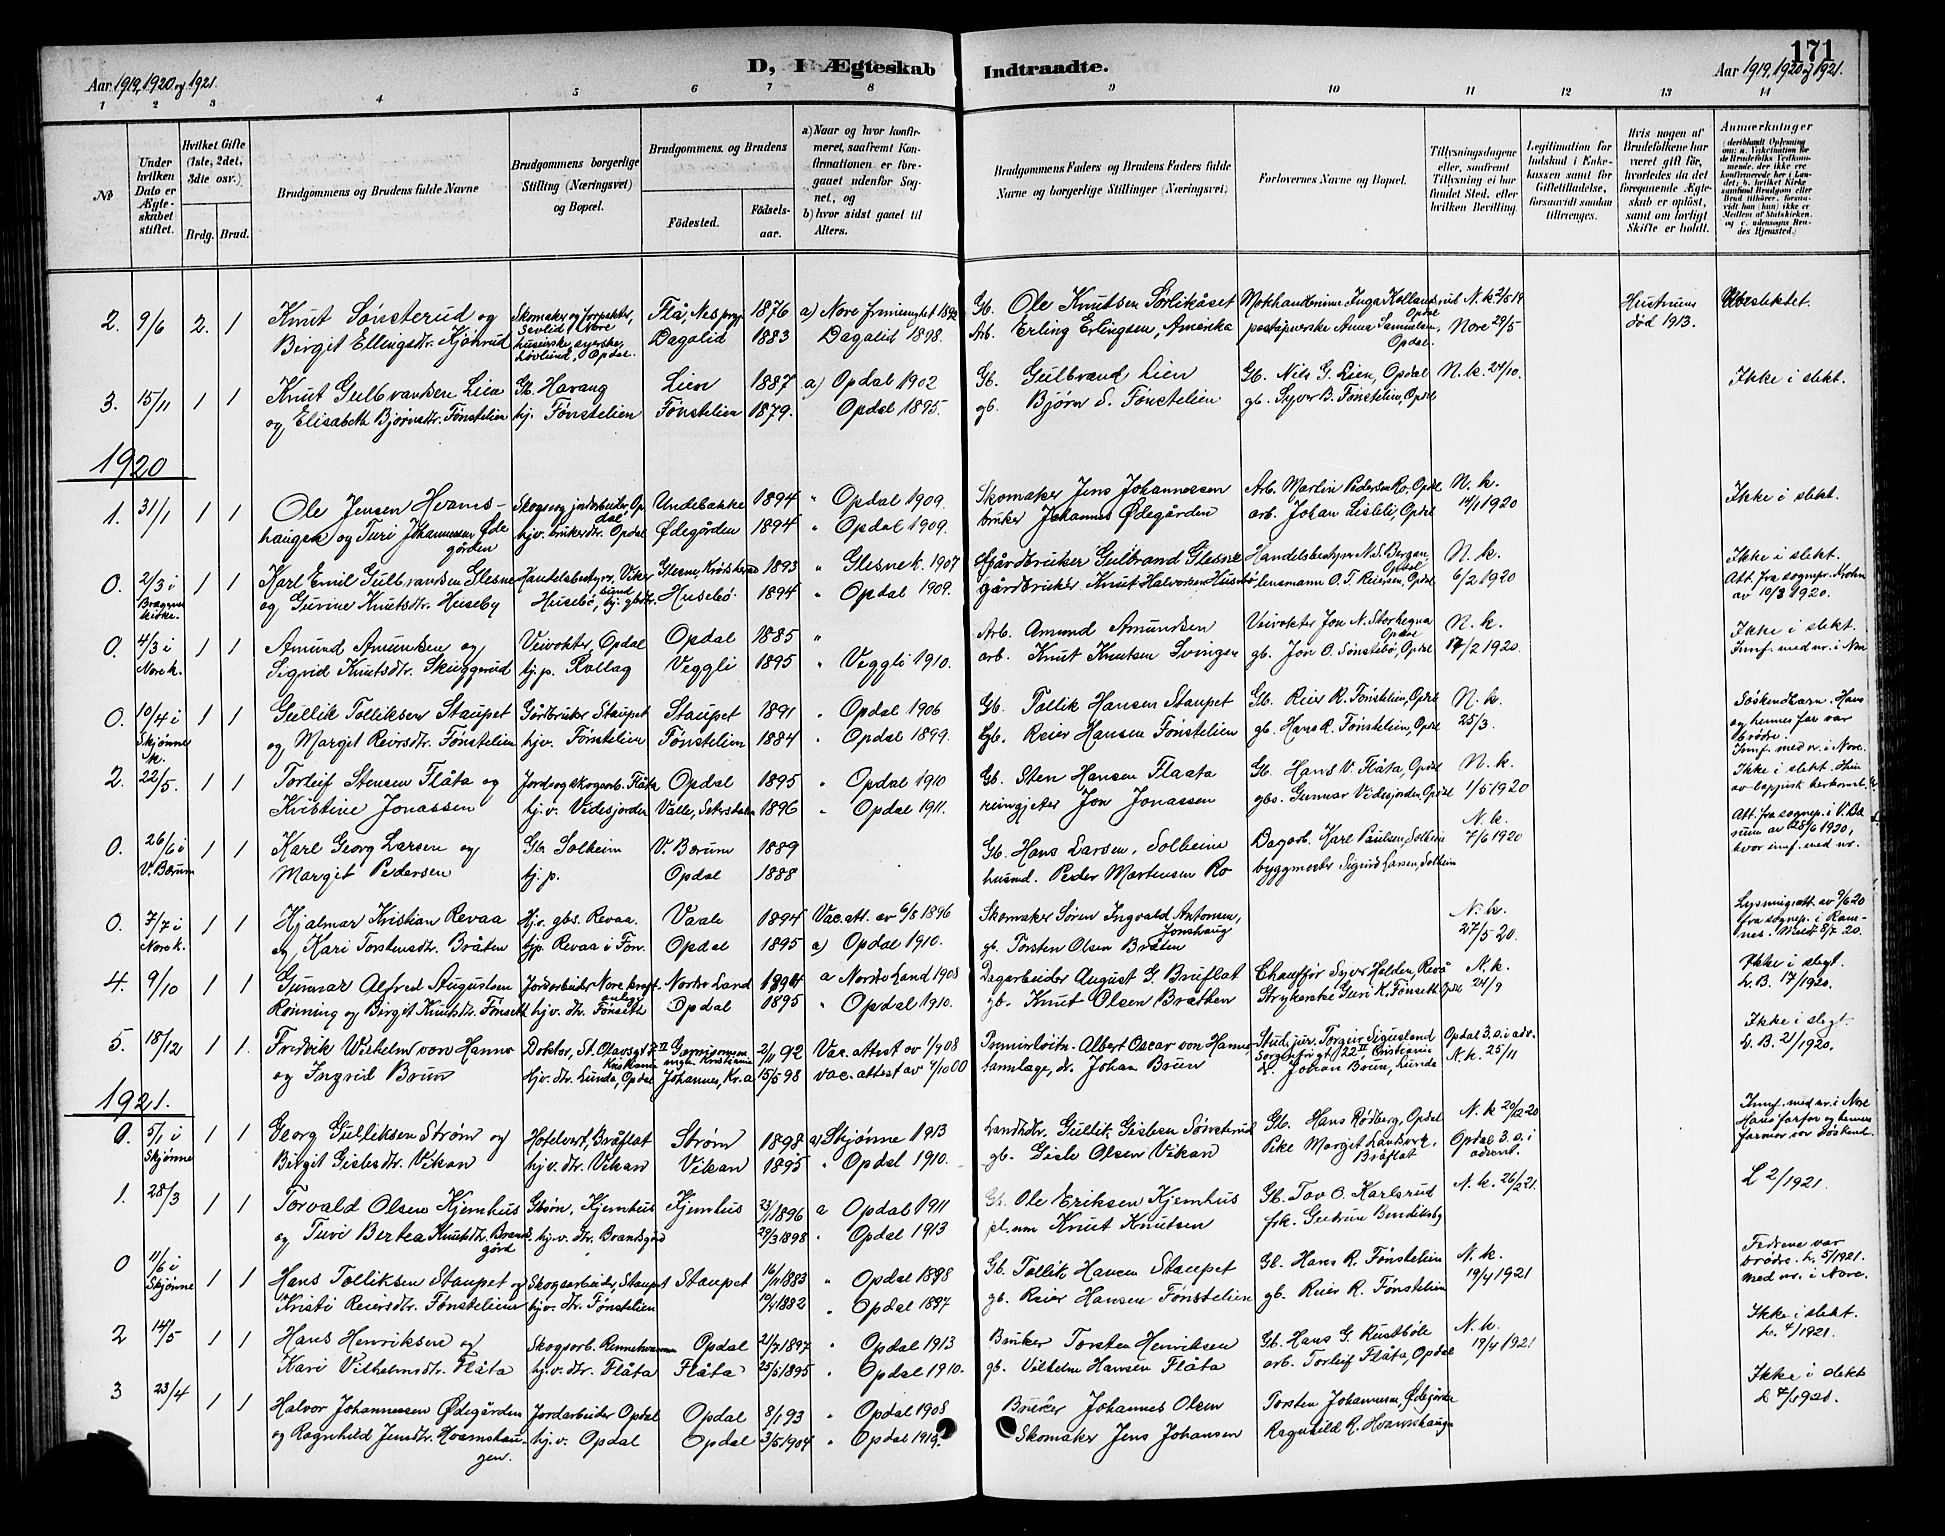 171
D, I Ægteskab Indtraadte.
Aar 1919, 1920 og 1921.
Aar 1919, 1920 og 1921.
1 2 3 4 5 6 7 8 9 10 11 12 13 14
No
Under hvilken Dato er Ægteskabet stiftet.
Hvilket Gifte (1ste, 2det, 3die osv.)
Brdg. Brud.
Brudgommens og Brudens fulde Navne
Brudgommens borgerlige Stilling (Næringsvei) og Bopæl.
Brudgommens og Brudens
Fødested.
Fødselsaar.
a) Naar og hvor konfirmeret, saafremt Konfirmationen er foregaaet udenfor Sognet, og
b) hvor sidst gaaet til Alters.
Brudgommens Faders og Brudens Faders fulde Navne og borgerlige Stillinger (Næringsvei).
Forlovernes Navne og Bopæl.
Tillysningsdagene eller, saafremt Tillysning ei har fundet Sted, efter hvilken Bevilling.
Legitimation for Indskud i Enkekassen samt for Giftetilladelse, forsaavidt saadan tiltrænges.
Hvis nogen af Brudefolkene har været gift før, hvorledes da det foregaaende Ægteskab er opløst, samt om lovligt Skifte er holdt.
Anmærkninger
2. 9/6 2. 1 Knut Sønsterud og Skomaker og Flå, Nes prgj. 1876 a) Nore Gb. Ole Knutsen Sørlikåset N. k. 2/5 19 Hustruen død 1913. Ubeslektet.
Birgit Ellingsdtr. Kjønrud Løvlund, Opdal. Dagalid 1883 Dagalid 1898. Arb. Erling Erlingsen, Amerika Anna Samuelsen, Opdal. Nore 29/5
3. 15/11 1 1 Knut Gulbrandsen Lien Gb. Havang Lien 1887 a) Opdal 1902 Gb. Gulbrand Lien Gb. Nils G. Lien, Opdal N. k. 24/10. Ikke i slekt.
og Elisabeth Bjørnsdtr. Fønstelien hj. Fønstelien Fønstelien 1879. Opdal 1895. gb. Bjørn S. Fønstelien gb. Syver B. Fønstelien, Opdal
1920
1. 31/1 1 1 Ole Jensen Hvams- Skogs og jordarbeider, Opdal Undebakke 1894 " Opdal 1909. Skomaker Jens Johannessen Arb. Martin Pedersen Ro, Opdal N. k. Ikke i slekt.
haugen og Turi Johannessen Ødegården hjv. brukerdtr. Opdal Ødegården 1894 " Opdal 1909. bruker Johannes Ødegården arb. Johan Lisleli, Opdal 14/1 1920
0. 2/3 i Bragernes kirke. 1 1 Karl Emil Gulbrandsen Glesne Handelsbestyrer, Vikersund Glesne, Krødsherad 1893 " Glesne k. 1907 Gårdbruker Gulbrand Glesne Handelsbestyrer N. S. Bergan, Opdal N. k. Ikke i slekt.
og Gurine Knutsdtr. Huseby Husebø, hj. gbdtr. Husebø 1894 " Opdal 1909. gårdbruker Knut Halvorsen Husebø lensmann O. T. Reiersen, Opdal 6/2 1920 Att. fra sognep. Krohn av 10/3 1920.
0. 4/3 i Nore k. 1 1 Amund Amundsen og Veivokter, Opdal Opdal 1885 " Arb. Amund Amundsen Veivokter Jon N. Storhegna Opdal N. k. Ikke i slekt.
Sigrid Knutsdtr. Skuggerud hj. p. Rollag Veggli 1895 " Veggli 1910. arb. Knut Knutsen Svingen gb. Jon O. Sønstebø, Opdal 14/2 1920. Innf. med nr. i Nore
0. 10/4 i Skjønne k. 1 1 Gullik Tolliksen Staupet Gårdbruker Staupet Staupet 1891 " Opdal 1906 Gb. Tollik Hansen Staupet Gb. Reier R. Fønstelien, Opdal N. k. Søskendbarn. Hans
og Margit Reiersdtr. Fønstelien hjv. Fønstelien Fønstelien 1884 " Opdal 1899. Gb. Reier Hansen Fønstelien gb. Hans R. Fønstelien, Opdal 25/3. og hennes far var brødre. Innf. med nr. i Nore.
2. 22/5. 1 1 Torleif Stensen Flåta og Jord og skogsarb. Flåta Opdal 1895 " Opdal 1910 Gb. Sten Hansen Flaata Gb. Hans V. Flåta, Opdal N. k. Ikke i slekt. Hun
Kristine Jonassen hj. v. Videsjorden Valle, Setesdalen 1896 " Opdal 1911. reingjeter Jon Jonassen gbs. Gunnar Videsjorden, Opdal 1/5 1920 av lappisk herkomst.
0. 26/6 i V. Bærum 1 1 Karl Georg Larsen og Gb. Solheim V. Bærum 1889 Gb. Hans Larsen, Solheim Dagarb. Karl Paulsen, Solheim N. k. 7/6 1920 Att. fra sognep. i V. Bærum av 28/6 1920, hvor innf. med nr.
Margit Pedersen hj. p. Opdal 1888 husmd. Peder Martensen Ro byggmester Sigurd Larsen, Solheim
0. 7/7 i Nore k. 1 1 Hjalmar Kristian Revaa Hjv. gbs. Revaa. Vaale 1894 Vac. att. av 6/8 1896 Skomaker Søren Ingvald Antonsen, Jonshaug N. k. Lysningsatt. av 9/6 20
og Kari Torstensdtr. Bråten hjp. Revaa i Fon. Opdal 1895 a) Opdal 1910. gb. Torsten Olsen Bråten 27/5 20. fra sognep. i Ramnes. Meldt 8/7 20.
4. 9/10 1 1 Gunnar Alfred Augustsen Jordarbeider Nore Nordre Land 1894 a Nordre Land 1908 Dagarbeider August G. Bruflat Chauffør Syver Halden, Revå N. k. Ikke i slegt.
Rønning og Birgit Knutsdtr. Fønseth hjv. dtr. Fønseth Opdal 1895 " Opdal 1910. gb. Knut Olsen Bråthen Strykerske Guri K. Fønseth Opdal 24/9 L. B. 17/1920.
5. 18/12 1 1 Fredrik Wilhelm von Hanno Doktor, St. Olavsgt. Kristiania Garnisonsmengh. Kristiania 2/11 92 Vac. attest av 1/9 08 Premierløitn. Albert Oscar von Hanno Stud. jur. Torgeir Sigusland Opdal 3. s. i adv. Ikke i slegt.
og Ingrid Brun Hjv. dtr. Lunda, Opdal Johannes, Kr.a 15/5 98 vac. attest av 4/10 00 tannlæge, dr. Johan Brun dr. Johan Brun, Lunda N. k. 25/11 L. B. 21/1920.
1921.
0. 5/1 i Skjønne 1 1 Georg Gulliksen Strøm og Hotelvert, Bråflat Strøm 1898 a) Skjønne 1913 Landhdr. Gullik Gislesen Sønsterud Gb. Hans Rødberg, Opdal N. k. 20/12 20 Innf. med nr. i Nore
Birgit Gislesdtr. Vikan hjv. dtr. Vikan Vikan 1895 " Opdal 1910. gb. Gisle Olsen Vikan Pike Margit Landsverk, Bråflat Opdal 3. s. i advent. Hans farfar og hennes farmor var søskend.
1. 28/3 1 1 Torvald Olsen Kjemhus Gbsøn, Kjemhus Kjemhus 23/1 1896 a Opdal 1911 Gb. Ole Eriksen Kjemhus Gb. Tov O. Karlsrud N. k. 26/2 21. L 2/1921.
og Turi Bertea Knutsdtr. Brandsgård hj. v. dtr. Brandsgård 29/3 1898 " Opdal 1913 Knut Knutsen frk. Gudrun Bendiksby
0 11/6 i Skjønne 1 1 Hans Tolliksen Staupet og Skogsarbeider, Staupet Staupet 16/11 1883 " Opdal 1898 Gb. Tollik Hansen Staupet Gb. Hans R. Fønstelien N. k. Fedrene var
Kristi Reiersdtr. Fønstelien hjv. dtr. Fønstelien 19/4 1882 " Opdal 1897 gb. Reier Hansen Fønstelien gb. Reier R. Fønstelien 19/4 1921 brødre. L. 5/1921. med nr. i Nore.
2 14/5 1 1 Hans Henriksen og Skogsarb. Opdal 2/7 1897 " Opdal 1913 Bruker Torsten Henriksen Gb. Hans G. Rustbøle N. k. Ikke i slekt.
Kari Vilhelmsdtr. Flåta hj. v. dtr. Flåta Flåta 25/5 1895 " Opdal 1910. gb. Vilhelm Hansen Flåta arb. Torleif Flåta, Opdal 19/4 1921 L. 4/1921.
3 23/4 1 1 Halvor Johannessen Ødegården Jordarbeider Opdal Opdal 8/1 93 " Opdal 1908 Bruker Johannes Olsen Torsten Johannessen, Ødegården Ikke i slekt
og Ragnhild Jensdtr. Hvamshaugen. hj. v. Opdal Opdal 3/5 1904 " Opdal 1919. Skomaker Jens Johansen Ragnhild R. Hvamshaugen